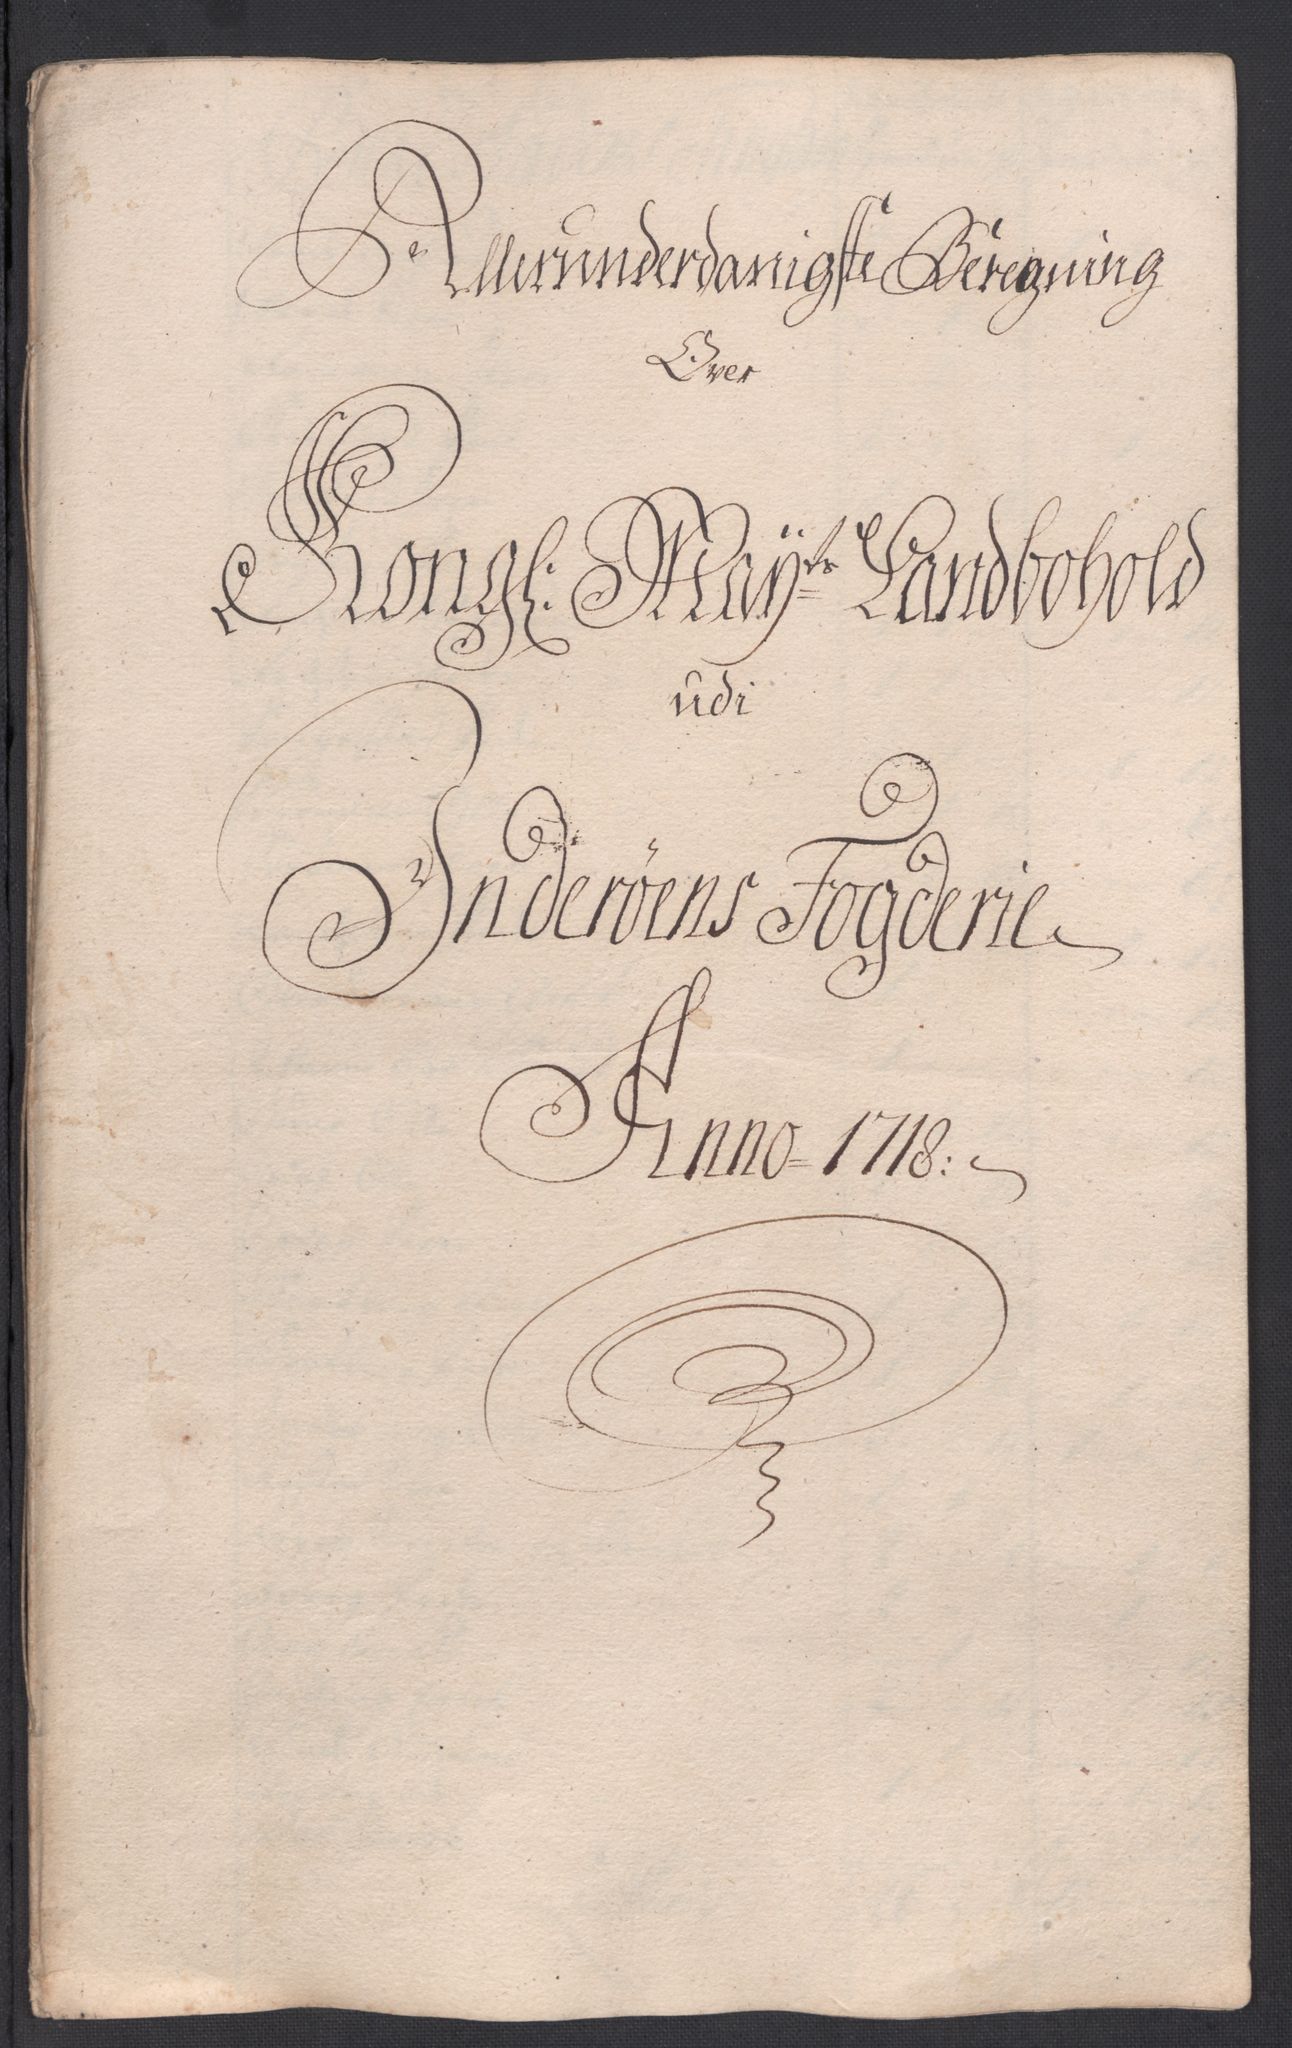 Allerunderdanigste Beregning
Over
Kongl: Maÿts Landbohold
udi
Inderöens Fogderie
Anno 1718: